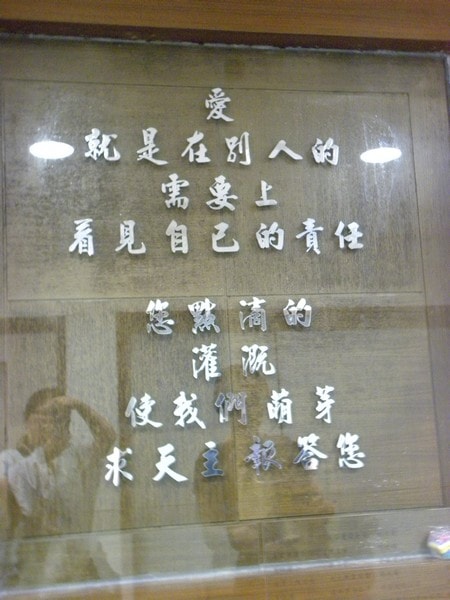 愛
就是在別人的
需要上
看見自己的責任
您點滴的
灌溉
使我們萌芽
求天主報答您